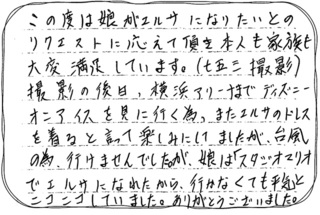 この度は娘がエルサになりたいとの
リクエストに応えて頂き本人も家族も
大変満足しています。(七五三撮影)
撮影の後日、横浜アリーナまでディズニー
オンアイスを見に行く為、またエルサのドレス
を着ると言って楽しみにしてましたが、台風
の為、行けませんでしたが、娘は「スタジオマリオ
でエルサになれたから、行かなくても平気と
ニコニコしていました。ありがとうございました。